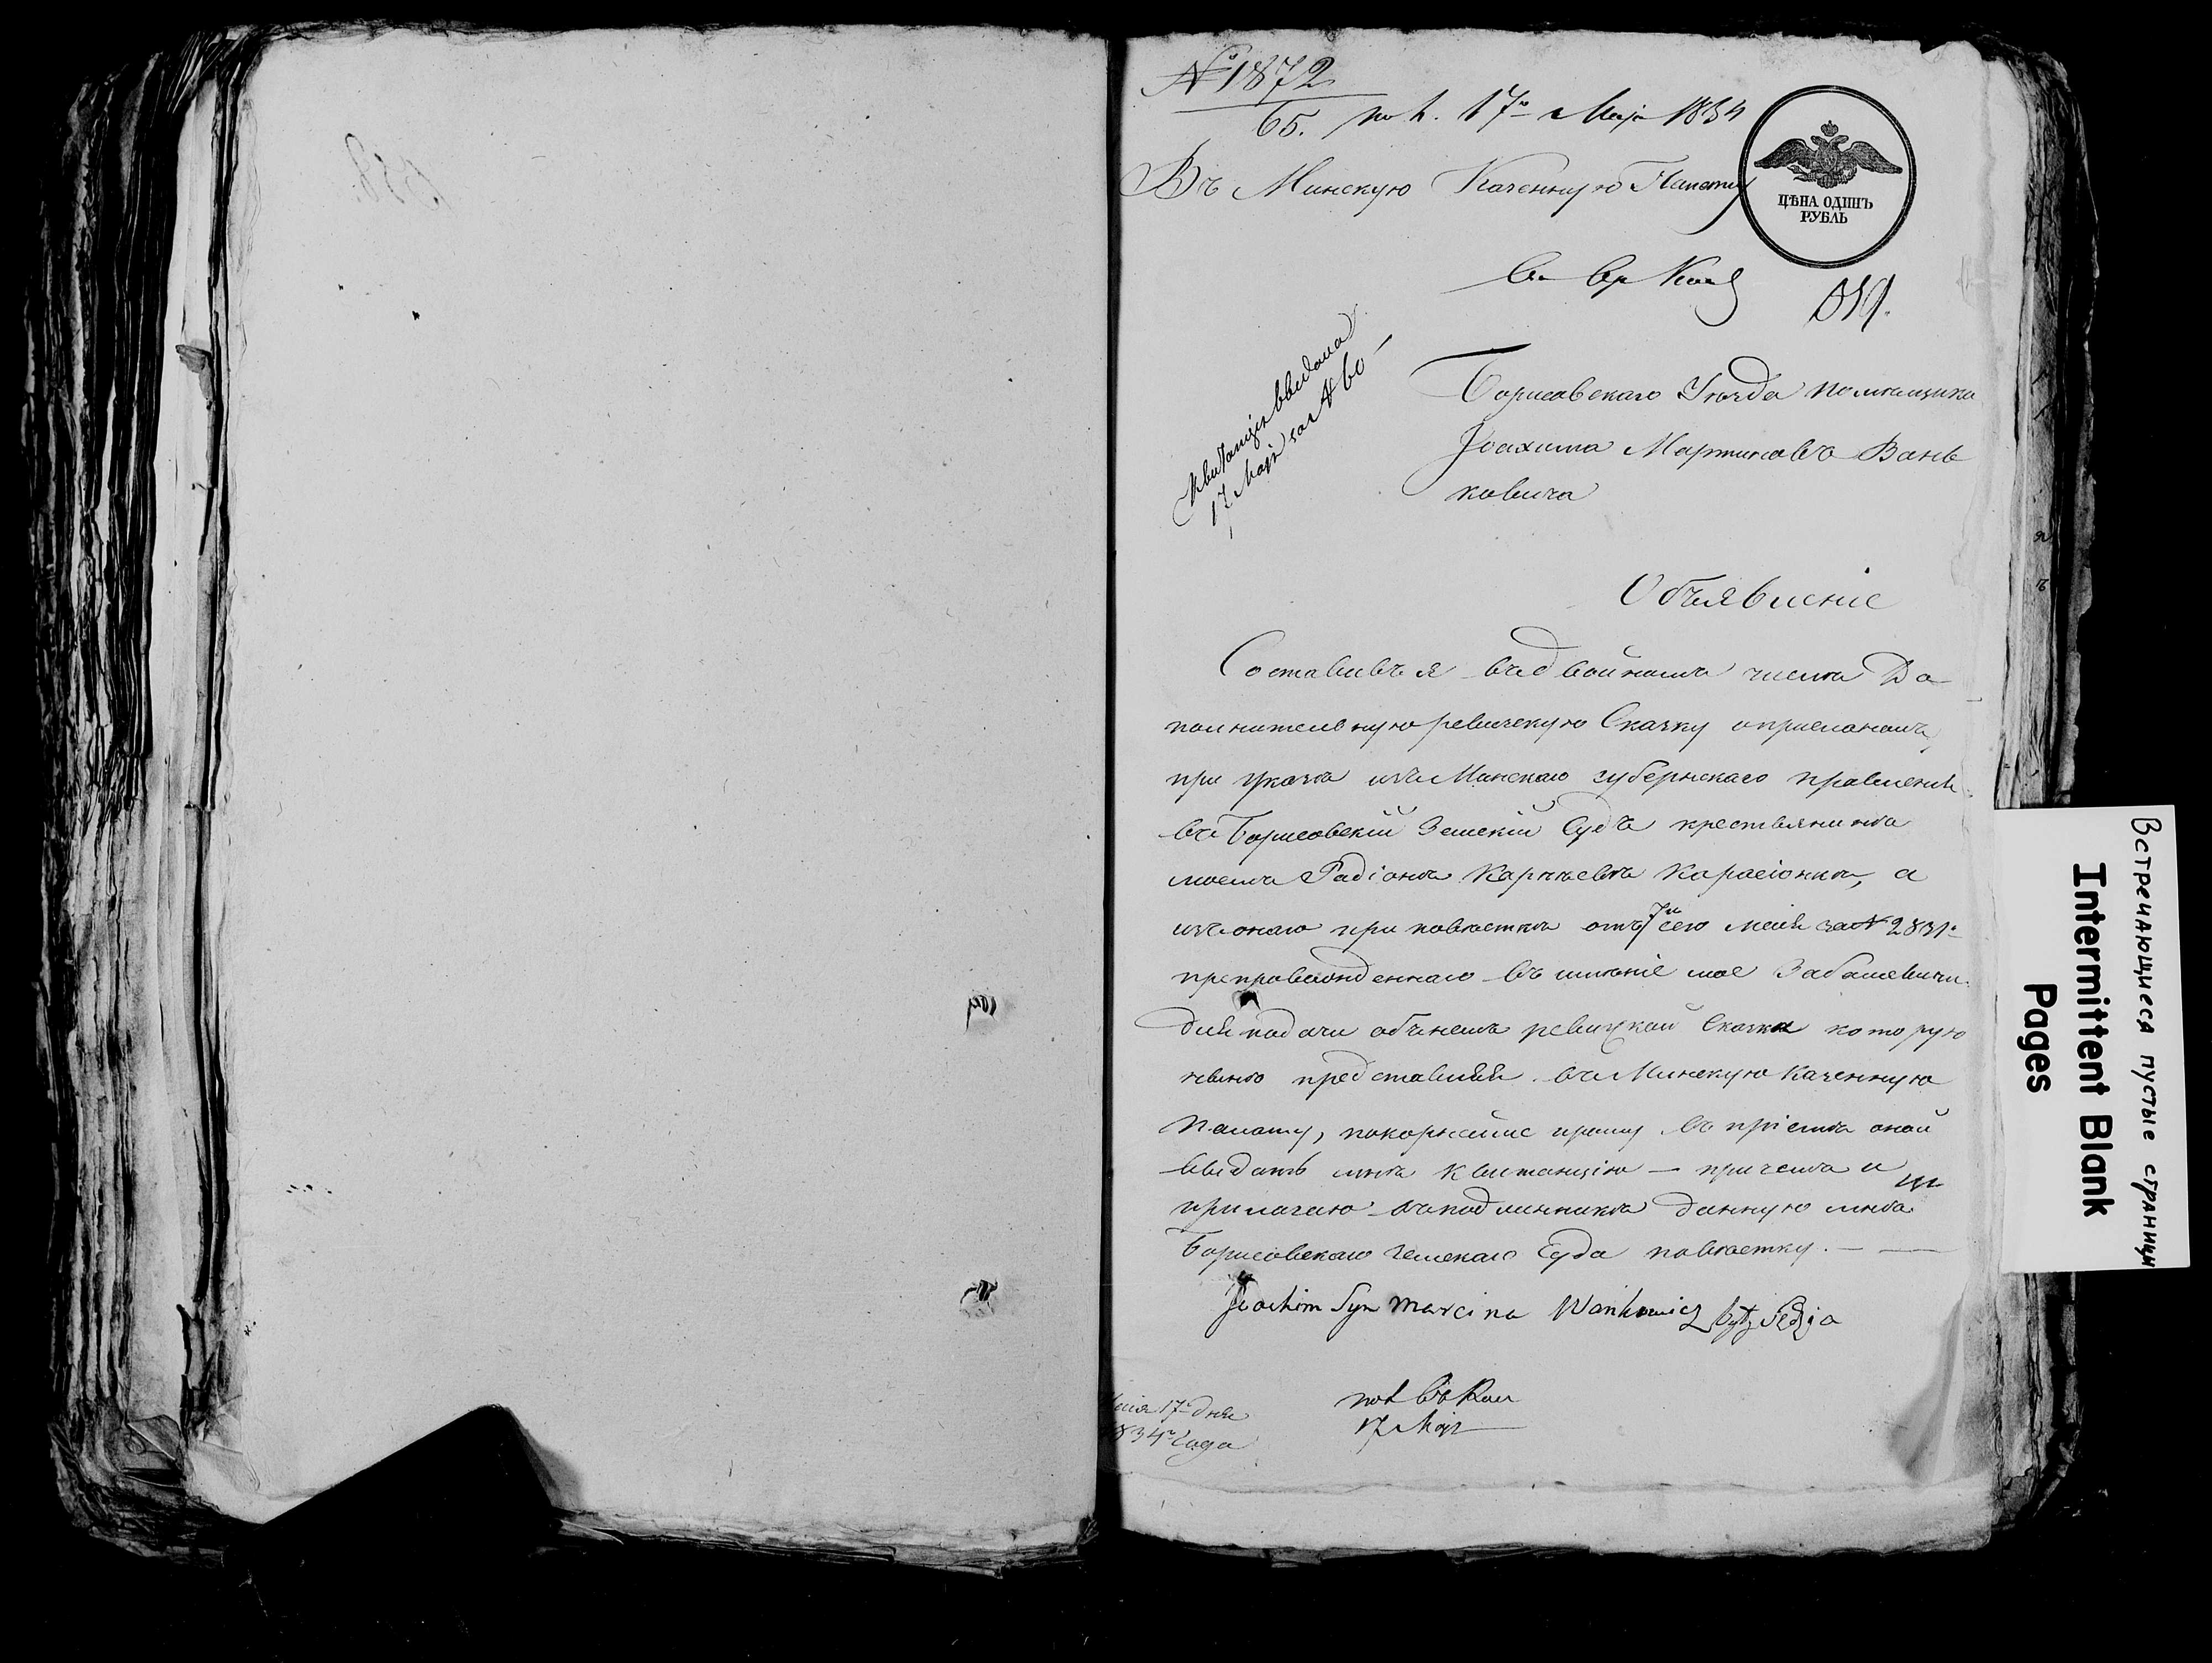 № 1872
65. пол. 17го Маія 1834
Въ Минскую Казенную Палату
ЦѢНА ОДИНЪ
РУБЛЬ
Борисовскаго Уѣзда помѣщика
Іоахима Мартинова Вань
ковича
Квитанція выдана
17 Маія за № 60
Объявленіе
Составивъ я въ двойномъ числѣ До
полнительную ревизскую Сказку о присланомъ,
при указѣ изъ Минскаго губернскаго правленія
въ Борисовскій Земскій Судъ крестьянинѣ
моемъ Радіонѣ Карпѣевѣ Карасіонкѣ, а
изъ онаго при повѣсткѣ отъ 7го сего маія за № 2831м
препровожденнаго въ имѣніе мое Забашевичи
для подачи объ немъ ревизской Сказки которую
представляя въ Минскую Казенную
Палату, покорнѣйше прошу въ пріемѣ оной
выдать мнѣ квитанцію — при чемъ и
прилагаю въ подлинникѣ данную мнѣ изъ
Борисовскаго земскаго Суда повѣстку. —
Joachim Syn Marcina Wankowicz był Sędzia
Маія 17 дня
1834го Года
17 Маія
Встречающиеся пустые страницы
Intermittent Blank
Pages